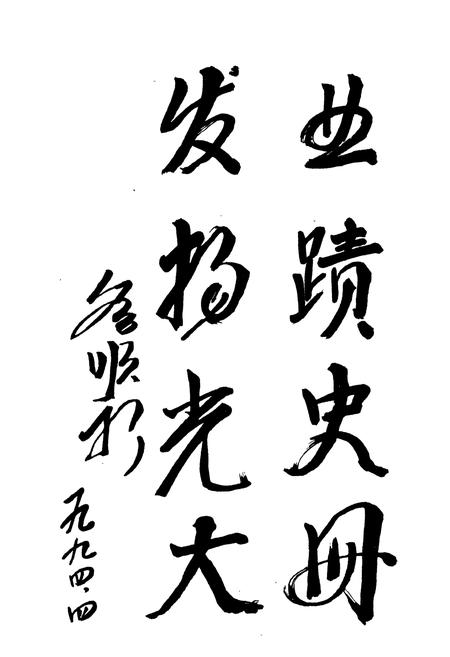 业蹟史冊
发扬光大
顺
一九九四、四